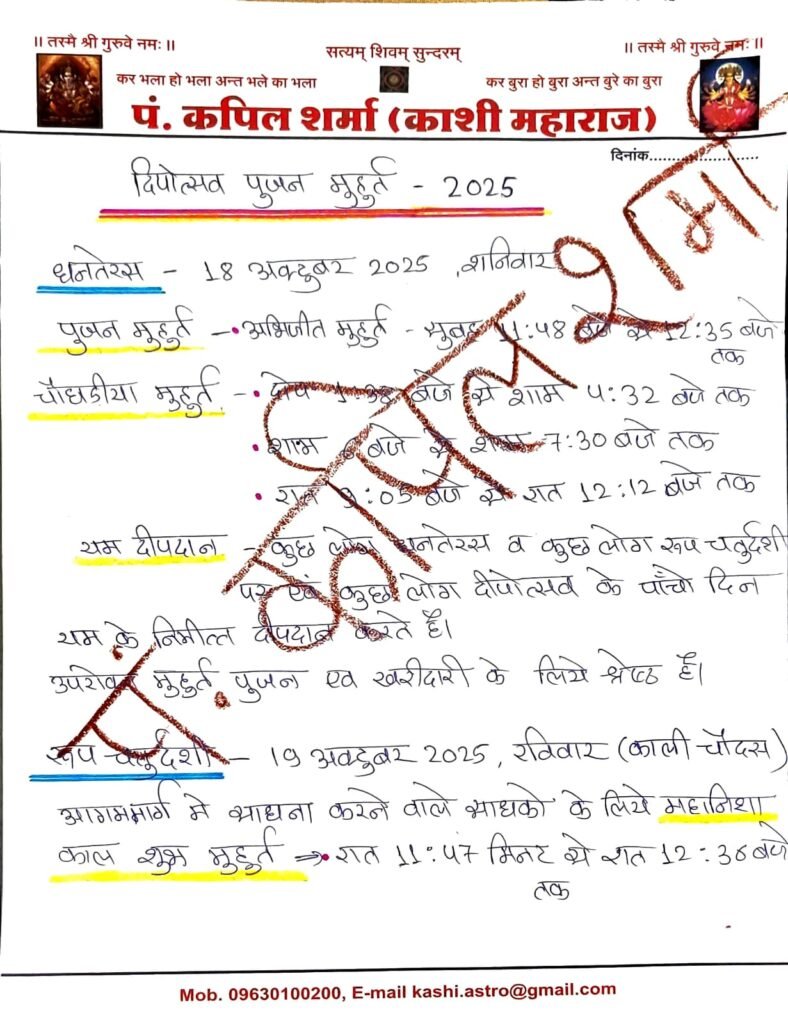 ॥ तस्मै श्री गुरुवे नमः ॥ सत्यम् शिवम् सुन्दरम् ॥ तस्मै श्री गुरुवे नमः ॥
कर भला हो भला अन्त भले का भला कर बुरा हो बुरा अन्त बुरे का बुरा
पं. कपिल शर्मा (काशी महाराज)
दिनांक.......................
दिपोत्सव पुजन मुहुर्त - 2025
धनतेरस - 18 अक्टुबर 2025 , शनिवार
पुजन मुहुर्त - • अभिजीत मुहुर्त - सुबह 11:48 बजे से 12:35 बजे
तक
चौघडीया मुहुर्त - • बजे से शाम 4:32 बजे तक
• शाम 6 बजे से शाम 7:30 बजे तक
• रात 9:05 बजे से रात 12:12 बजे तक
यम दीपदान - कुछ लोग धनतेरस व कुछ लोग रूप चतुर्दशी
पर एवं कुछ लोग दीपोत्सव के पाँचो दिन
यम के निमीत्त दीपदान करते है।
उपरोक्त मुहुर्त पुजन एव खरीदारी के लिये श्रेष्ठ है।
रूप चतुर्दशी - 19 अक्टुबर 2025, रविवार (काली चौदस)
आगममार्ग मे साधना करने वाले साधको के लिये महानिशा
काल शुभ मुहुर्त → • रात 11:47 मिनट से रात 12:36 बजे
तक
पं. कपिल शर्मा
Mob. 09630100200, E-mail kashi.astro@gmail.com